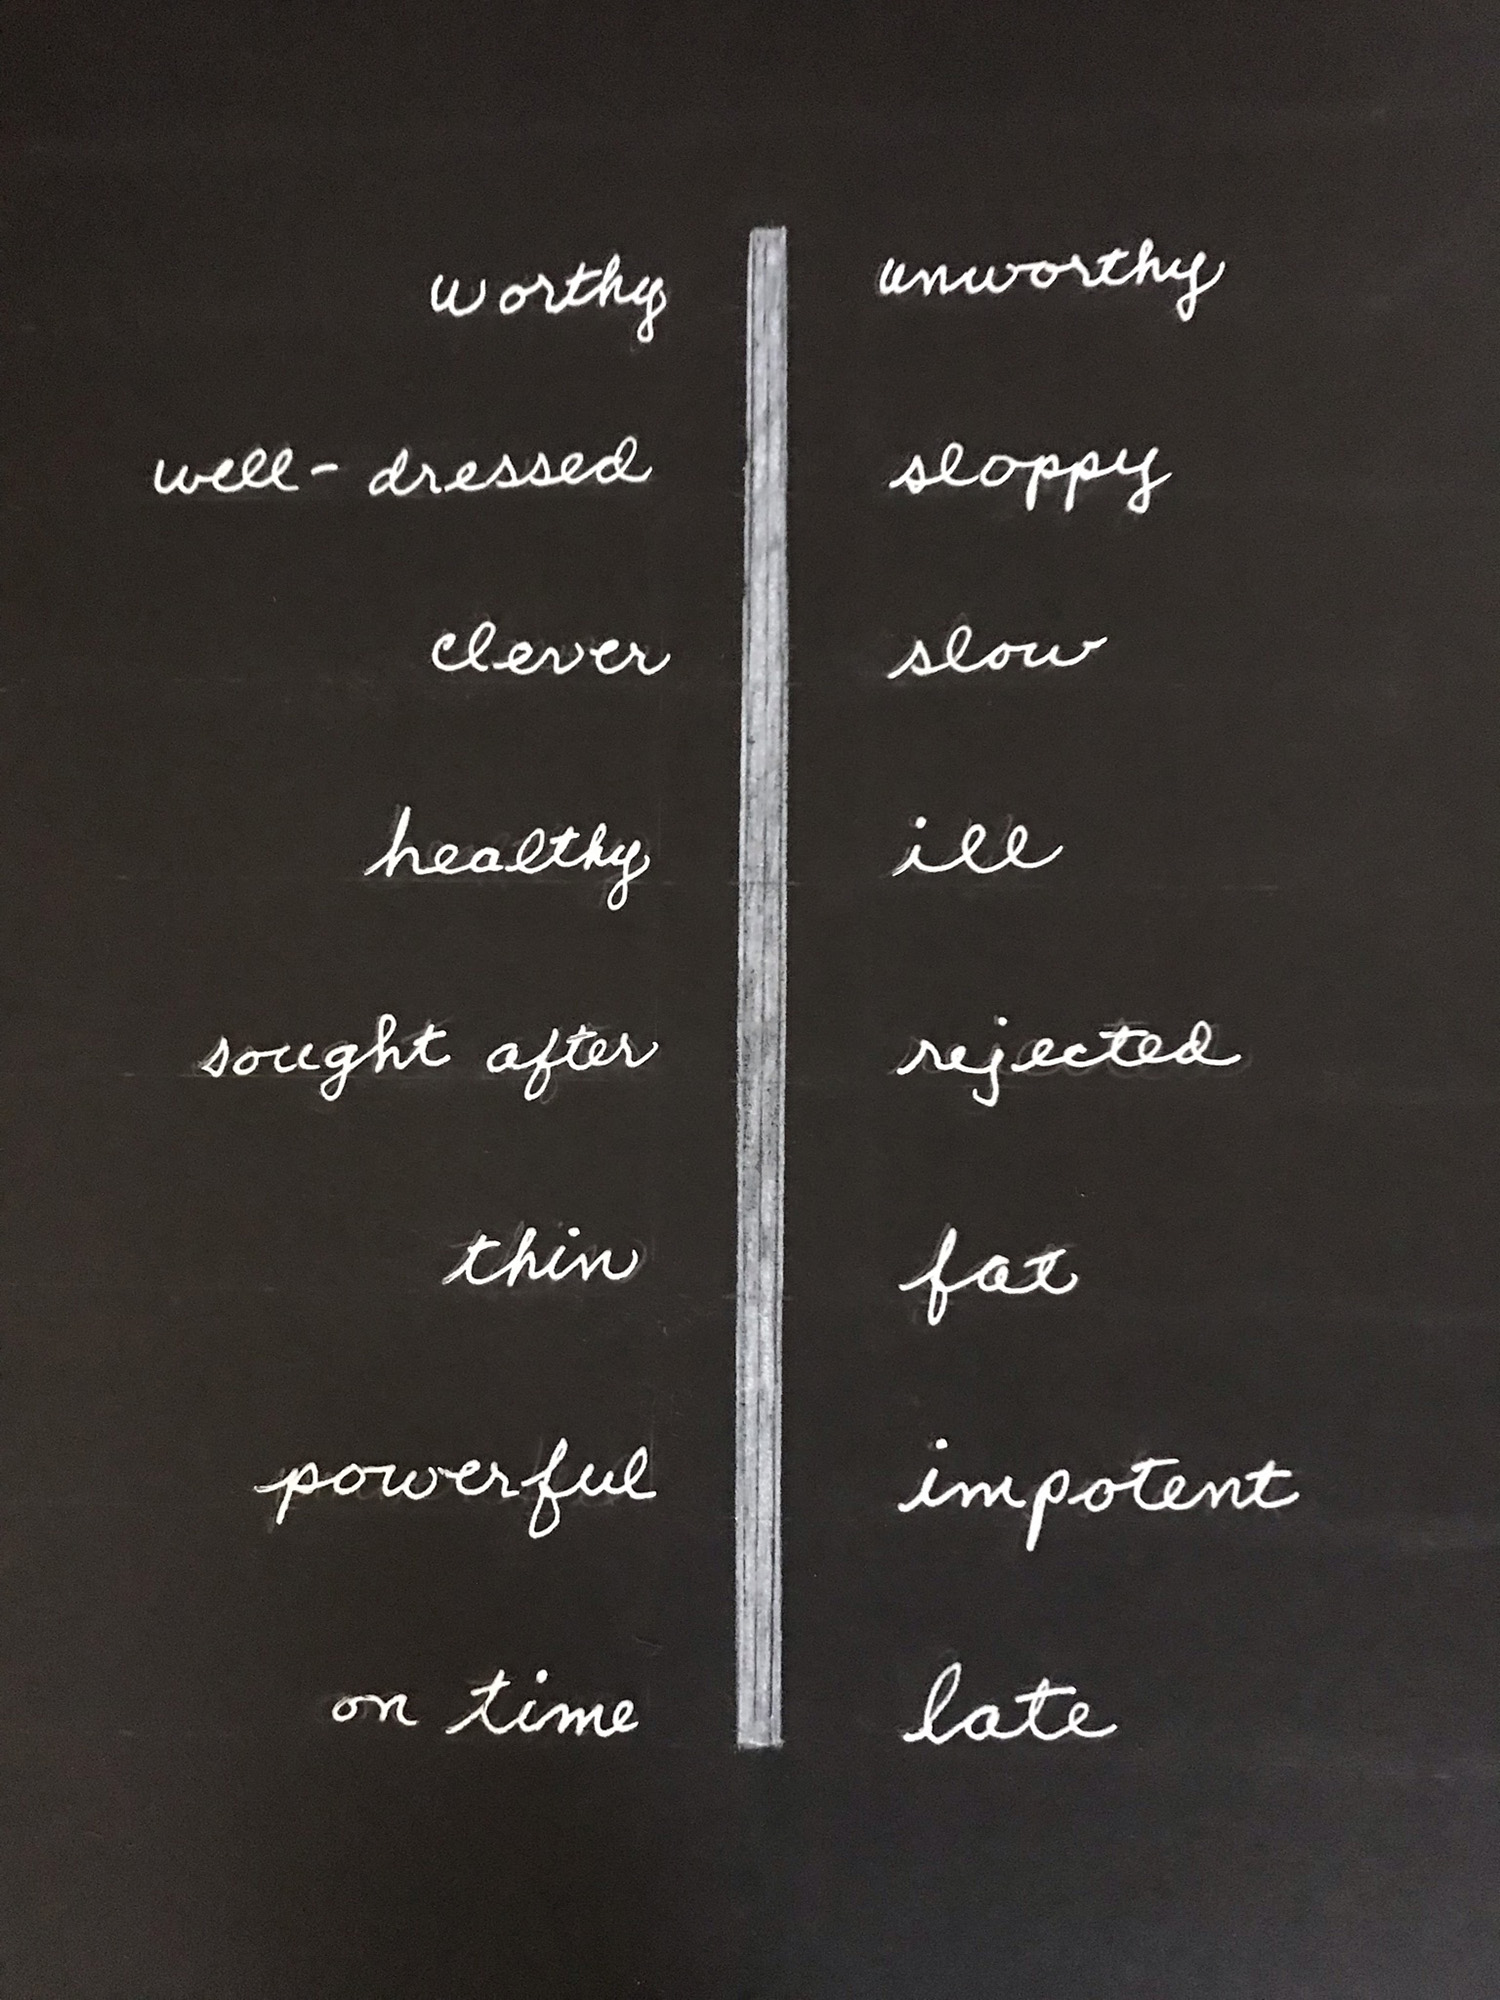 worthy unworthy
well-dressed sloppy
clever slow
healthy ill
sought after rejected
thin fat
powerful impotent
on time late